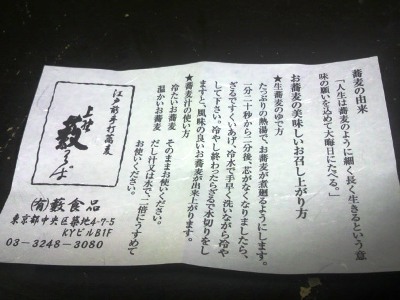 蕎麦の由来
「人生は蕎麦のように細く長く生きるという意
味の願いを込めて大晦日にたべる。」
お蕎麦の美味しいお召し上がり方
★生蕎麦のゆで方
たっぷりの熱湯で、お蕎麦が煮踊るようにします。
一分二十秒から二分後、芯がなくなりましたら、
ざるですくいあげ、冷水で手早く洗いながら冷や
して下さい。冷やし終わったらざるで水切りをし
ますと、風味の良いお蕎麦が出来上がります。
★蕎麦汁の使い方
冷たいお蕎麦 そのままお使いください。
温かいお蕎麦 だし汁又は水で、二倍にうすめて
お使いください。
江戸前手打蕎麦
上野
藪そば
㈲藪食品
東京都中央区築地4-7-5
KYビルB1F
03-3248-3080